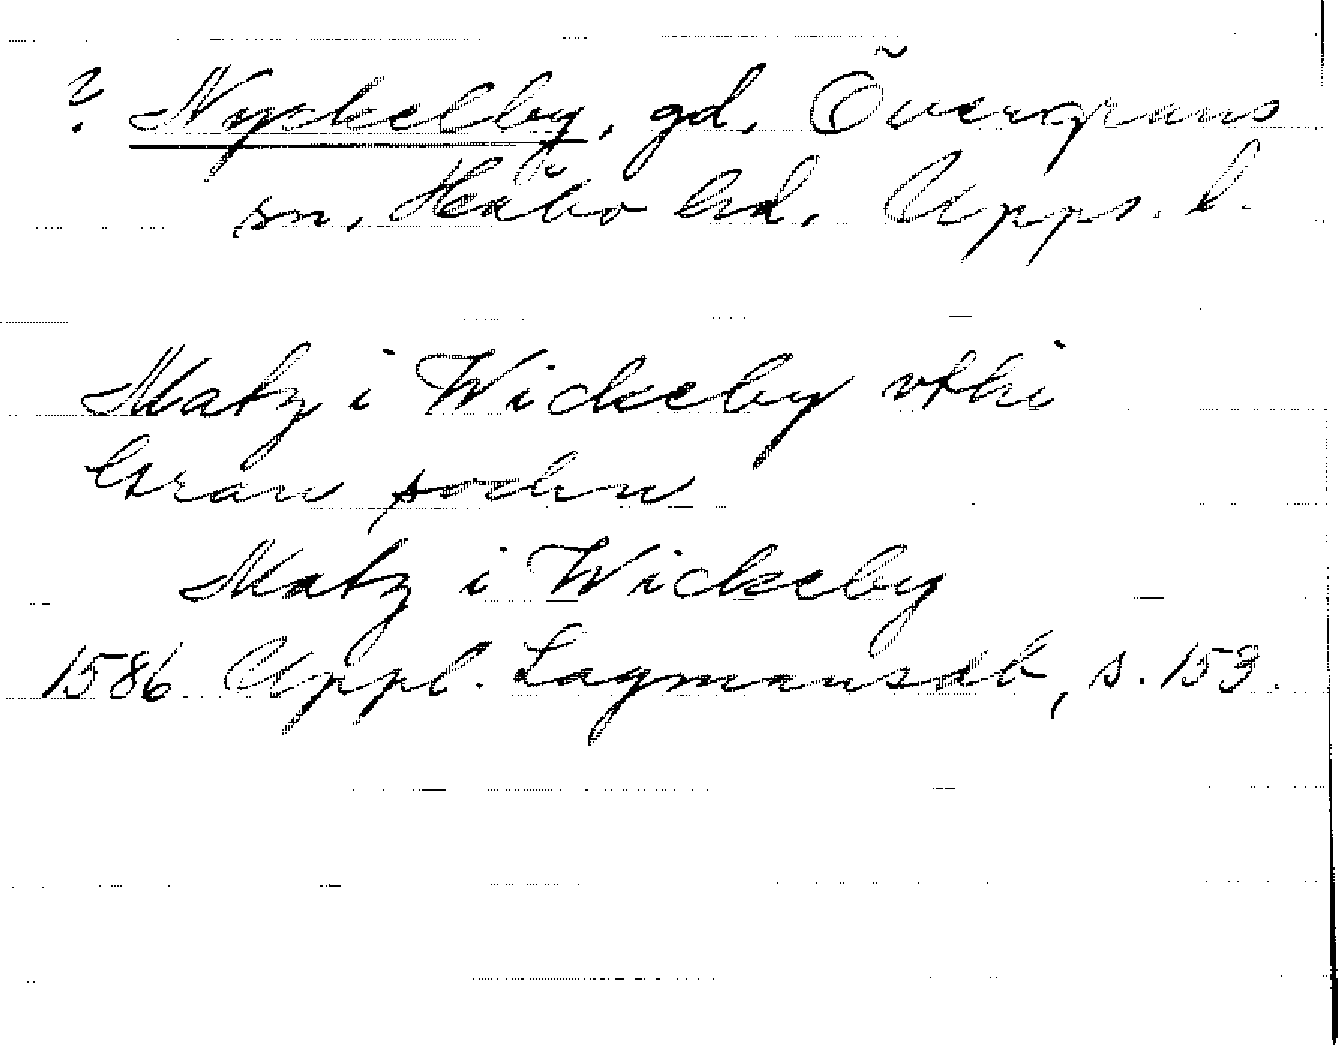 ? Nyskelby, gd, Övergrans
sn, Håbo hd, Upps. l.
Matz i Wickeby vthi
Gran sochn
Matz i Wickeby
1586 Uppl. Lagmansdb, s. 153.